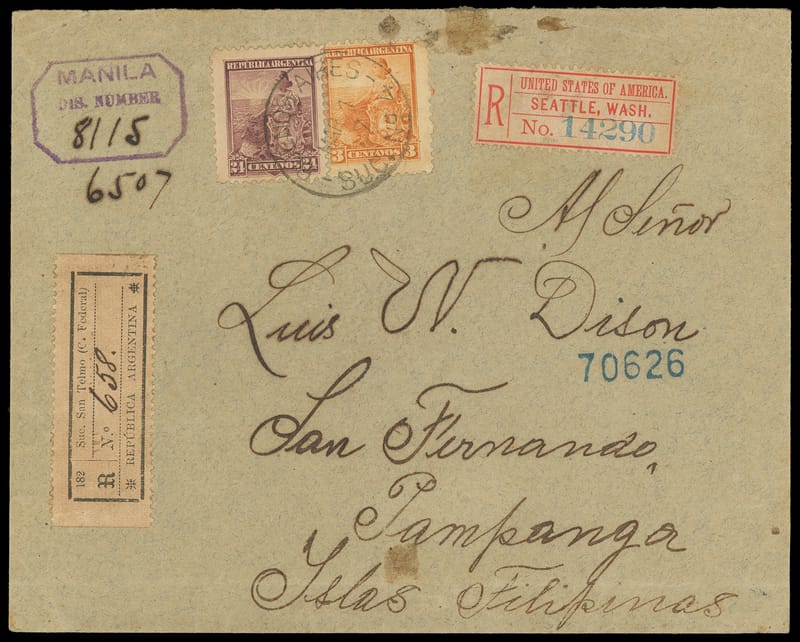 MANILA
DIS. NUMBER
8115
6507
REPÚBLICA ARGENTINA
24 CENTAVOS 24
REPÚBLICA ARGENTINA
3 CENTAVOS 3
BUENOS AIRES
R
UNITED STATES OF AMERICA.
SEATTLE, WASH.
No. 14290
182 Suc. San Telmo (C. Federal)
R N.º 658.
* REPÚBLICA ARGENTINA *
Al Señor
Luis W. Dison
70626
San Fernando,
Pampanga
Islas Filipinas